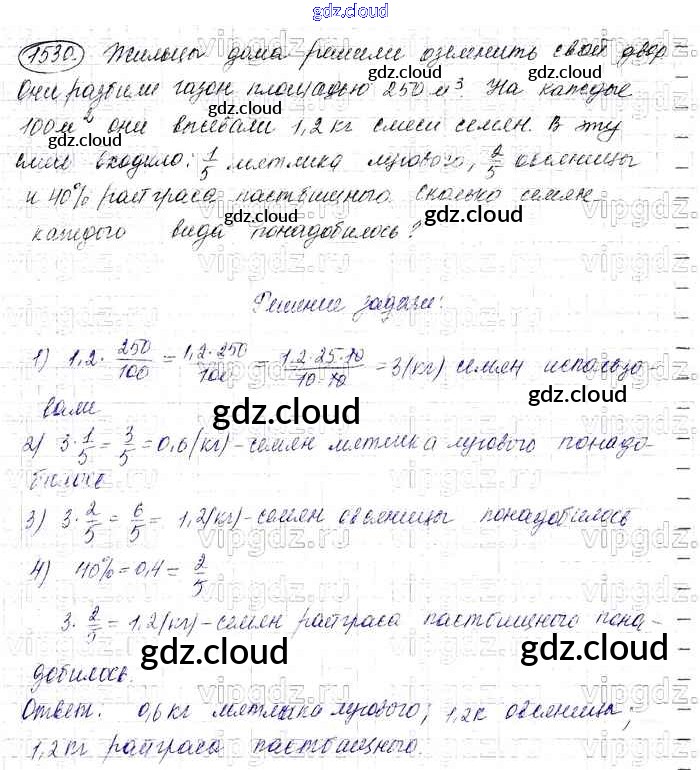 gdz.cloud
1530. Жильцы дома решили озеленить свой двор
Они разбили газон площадью 250 м³. На каждые
100 м² они высевали 1,2 кг смеси семян. В эту
смесь входило: 1/5 мятлика лугового, 2/5 овсяницы
и 40% райграса пастбищного. Сколько семян
каждого вида понадобилось?
Решение задачи:
1) 1,2 · 250/100 = 1,2·250/100 = 1,2·25·10/10·10 = 3(кг) семян использо-
вали
2) 3·1/5 = 3/5 = 0,6(кг) - семян мятлика лугового понадо-
билось
3) 3·2/5 = 6/5 = 1,2(кг) - семян овсяницы понадобилось
4) 40% = 0,4 = 2/5
3·2/5 = 1,2(кг) - семян райграса пастбищного пона-
добилось.
Ответ: 0,6 кг мятлика лугового; 1,2к овсяницы;
1,2 кг райграса пастбищного.